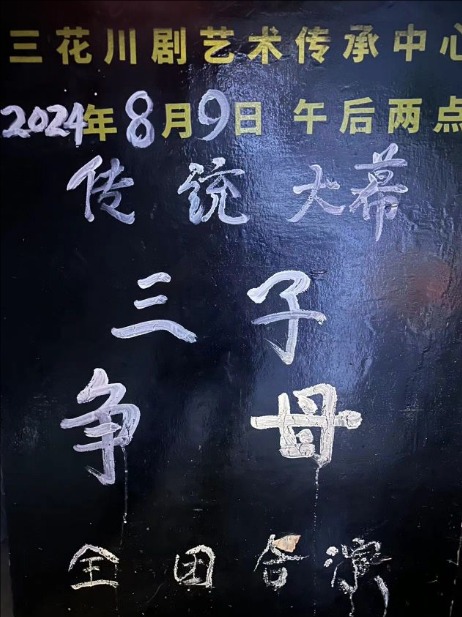 三花川剧艺术传承中心
2024年8月9日 午后两点
传统大幕
三子
争母
全团合演